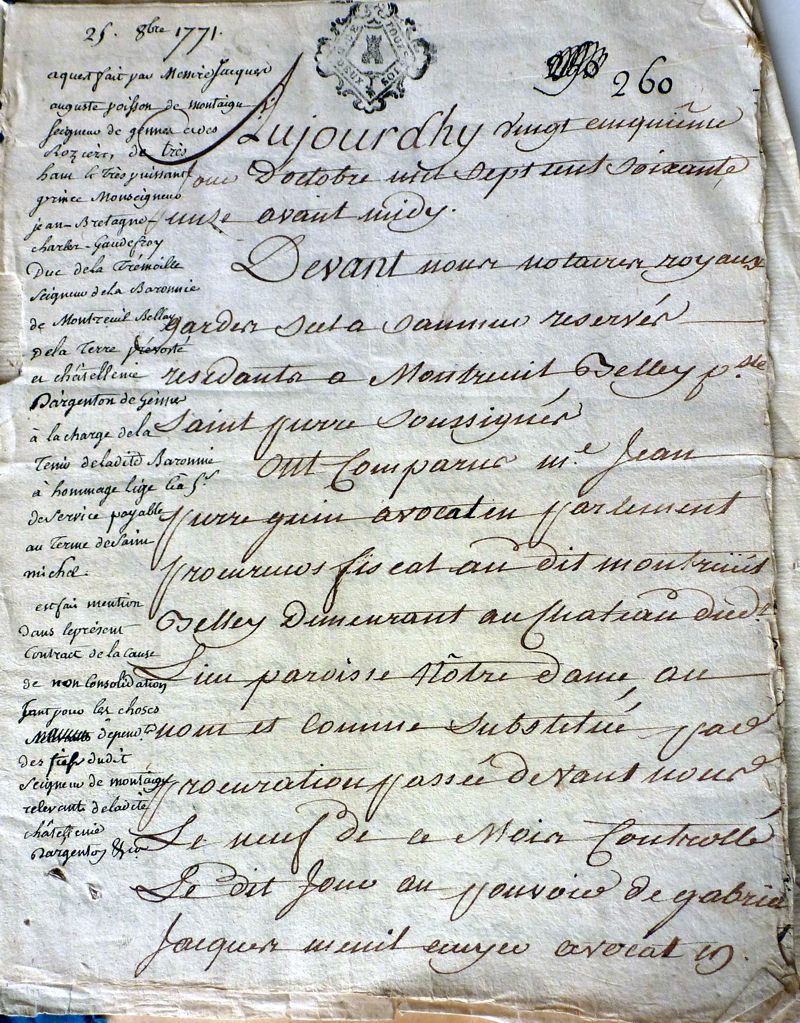 25. 8bre 1771.
260
aquest fait par Messire Jacques
auguste poisson de montaigu
seigneur de gennes et des
Roziers, de très
haut et très puissant
prince Monseigneur
jean-Bretagne-
charles-Gaudefroy
Duc de la Trémoille
seigneur de la Baronnie
de Montreuil Bellay
de la Terre prévosté
et châtellenie
Dargenton de Gennes
à la charge de la
Tenir de ladite Baronnie
à hommage lige
de service payable
au Terme de Saint
michel.
est fait mention
dans le présent
Contract de la cause
de non Consolidation
tant pour les choses
dépend.tes
des fiefs dudit
seigneur de montaigu
relevants de ladite
châtellenie
Dargenton
Aujourdhy vingt cinquiême
jour D'octobre mil sept cent soixante
unze avant midy.
Devant nous notaires royaux
gardes scel a Saumur reservés
residants a Montreuil Bellay p.sse
Saint pierre soussignés
Ont Comparus m.e Jean
pierre guin avocat en parlement
procureur fiscal au dit montreuil
Bellay Demeurant au Chateau dud.t
Lieu paroisse Nôtre dame au
nom et comme substitué par
procuration passée devant nous
Le neuf de ce Mois Controllé
Le dit Jour au pouvoir de gabriel
Jacques avocat en